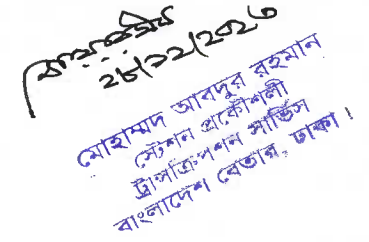 ২৮/১২/২০২৩
মোহাম্মদ আবদুর রহমান
স্টেশন প্রকৌশলী
ট্রান্সক্রিপশন সার্ভিস
বাংলাদেশ বেতার, ঢাকা।